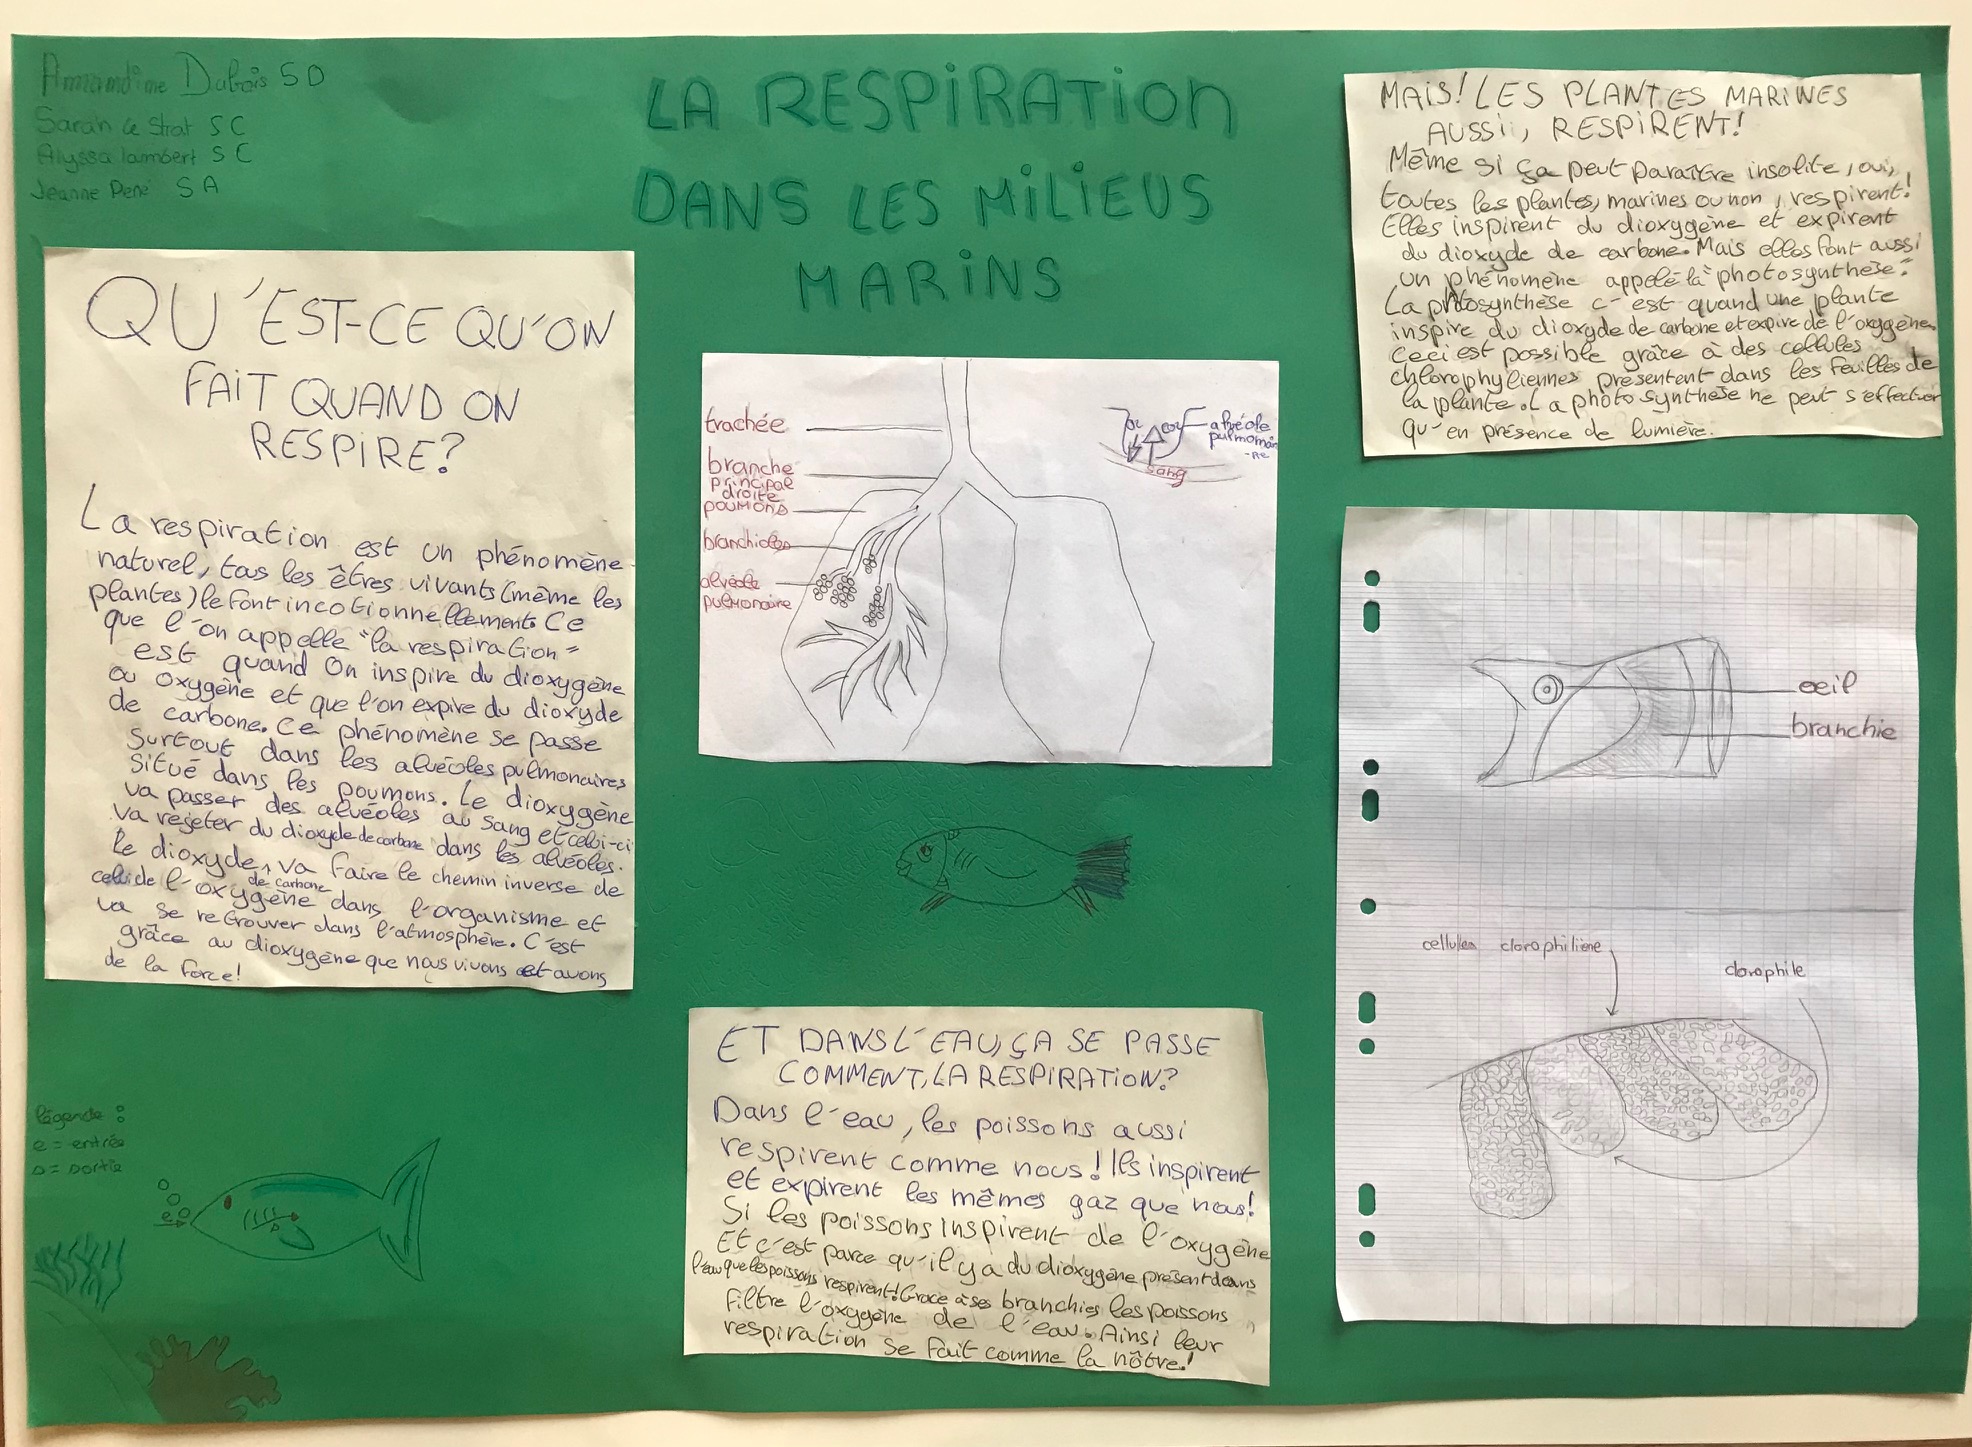 Amandine Dubois 5D
Sarah Le Strat 5C
Alyssa lambert 5C
Jeanne René 5A
LA RESPIRATION
DANS LES MILIEUS
MARINS
QU'EST-CE QU'ON
FAIT QUAND ON
RESPIRE?
La respiration est un phénomène
naturel, tous les êtres vivants (même les
plantes) le font incotionnellement. Ce
que l'on appelle "la respiration"
est quand on inspire du dioxygène
ou oxygène et que l'on expire du dioxyde
de carbone. Ce phénomène se passe
surtout dans les alvéoles pulmonaires
situé dans les poumons. Le dioxygène
va passer des alvéoles au sang et celui-ci
va rejeter du dioxyde de carbone dans les alvéoles.
Le dioxyde de carbone va faire le chemin inverse de
celui de l'oxygène dans l'organisme et
va se retrouver dans l'atmosphère. C'est
grâce au dioxygène que nous vivons et avons
de la force!
trachée
branche
principal
droite
poumons
branchioles
alvéole
pulmonaire
alvéole
pulmonai
-re
sang
MAIS! LES PLANTES MARINES
AUSSI, RESPIRENT!
Même si ça peut paraître insolite, oui,
toutes les plantes, marines ou non, respirent!
Elles inspirent du dioxygène et expirent
du dioxyde de carbone. Mais elles font aussi
un phénomène appelé la "photosynthèse".
La photosynthèse c'est quand une plante
inspire du dioxyde de carbone et expire de l'oxygène.
Ceci est possible grâce à des cellules
chlorophyliennes présentent dans les feuilles de
la plante. La photosynthèse ne peut s'effectuer
qu'en présence de lumière.
oeil
branchie
cellules clorophiliene
clorophile
ET DANS L'EAU, ÇA SE PASSE
COMMENT, LA RESPIRATION?
Dans l'eau, les poissons aussi
respirent comme nous! Ils inspirent
et expirent les mêmes gaz que nous!
Si les poissons inspirent de l'oxygène
Et c'est parce qu'il y a du dioxygène présent dans
l'eau que les poissons respirent! Grace à ses branchies les poissons
filtre l'oxygène de l'eau. Ainsi leur
respiration se fait comme la nôtre!
légende :
e = entrée
s = sortie
e